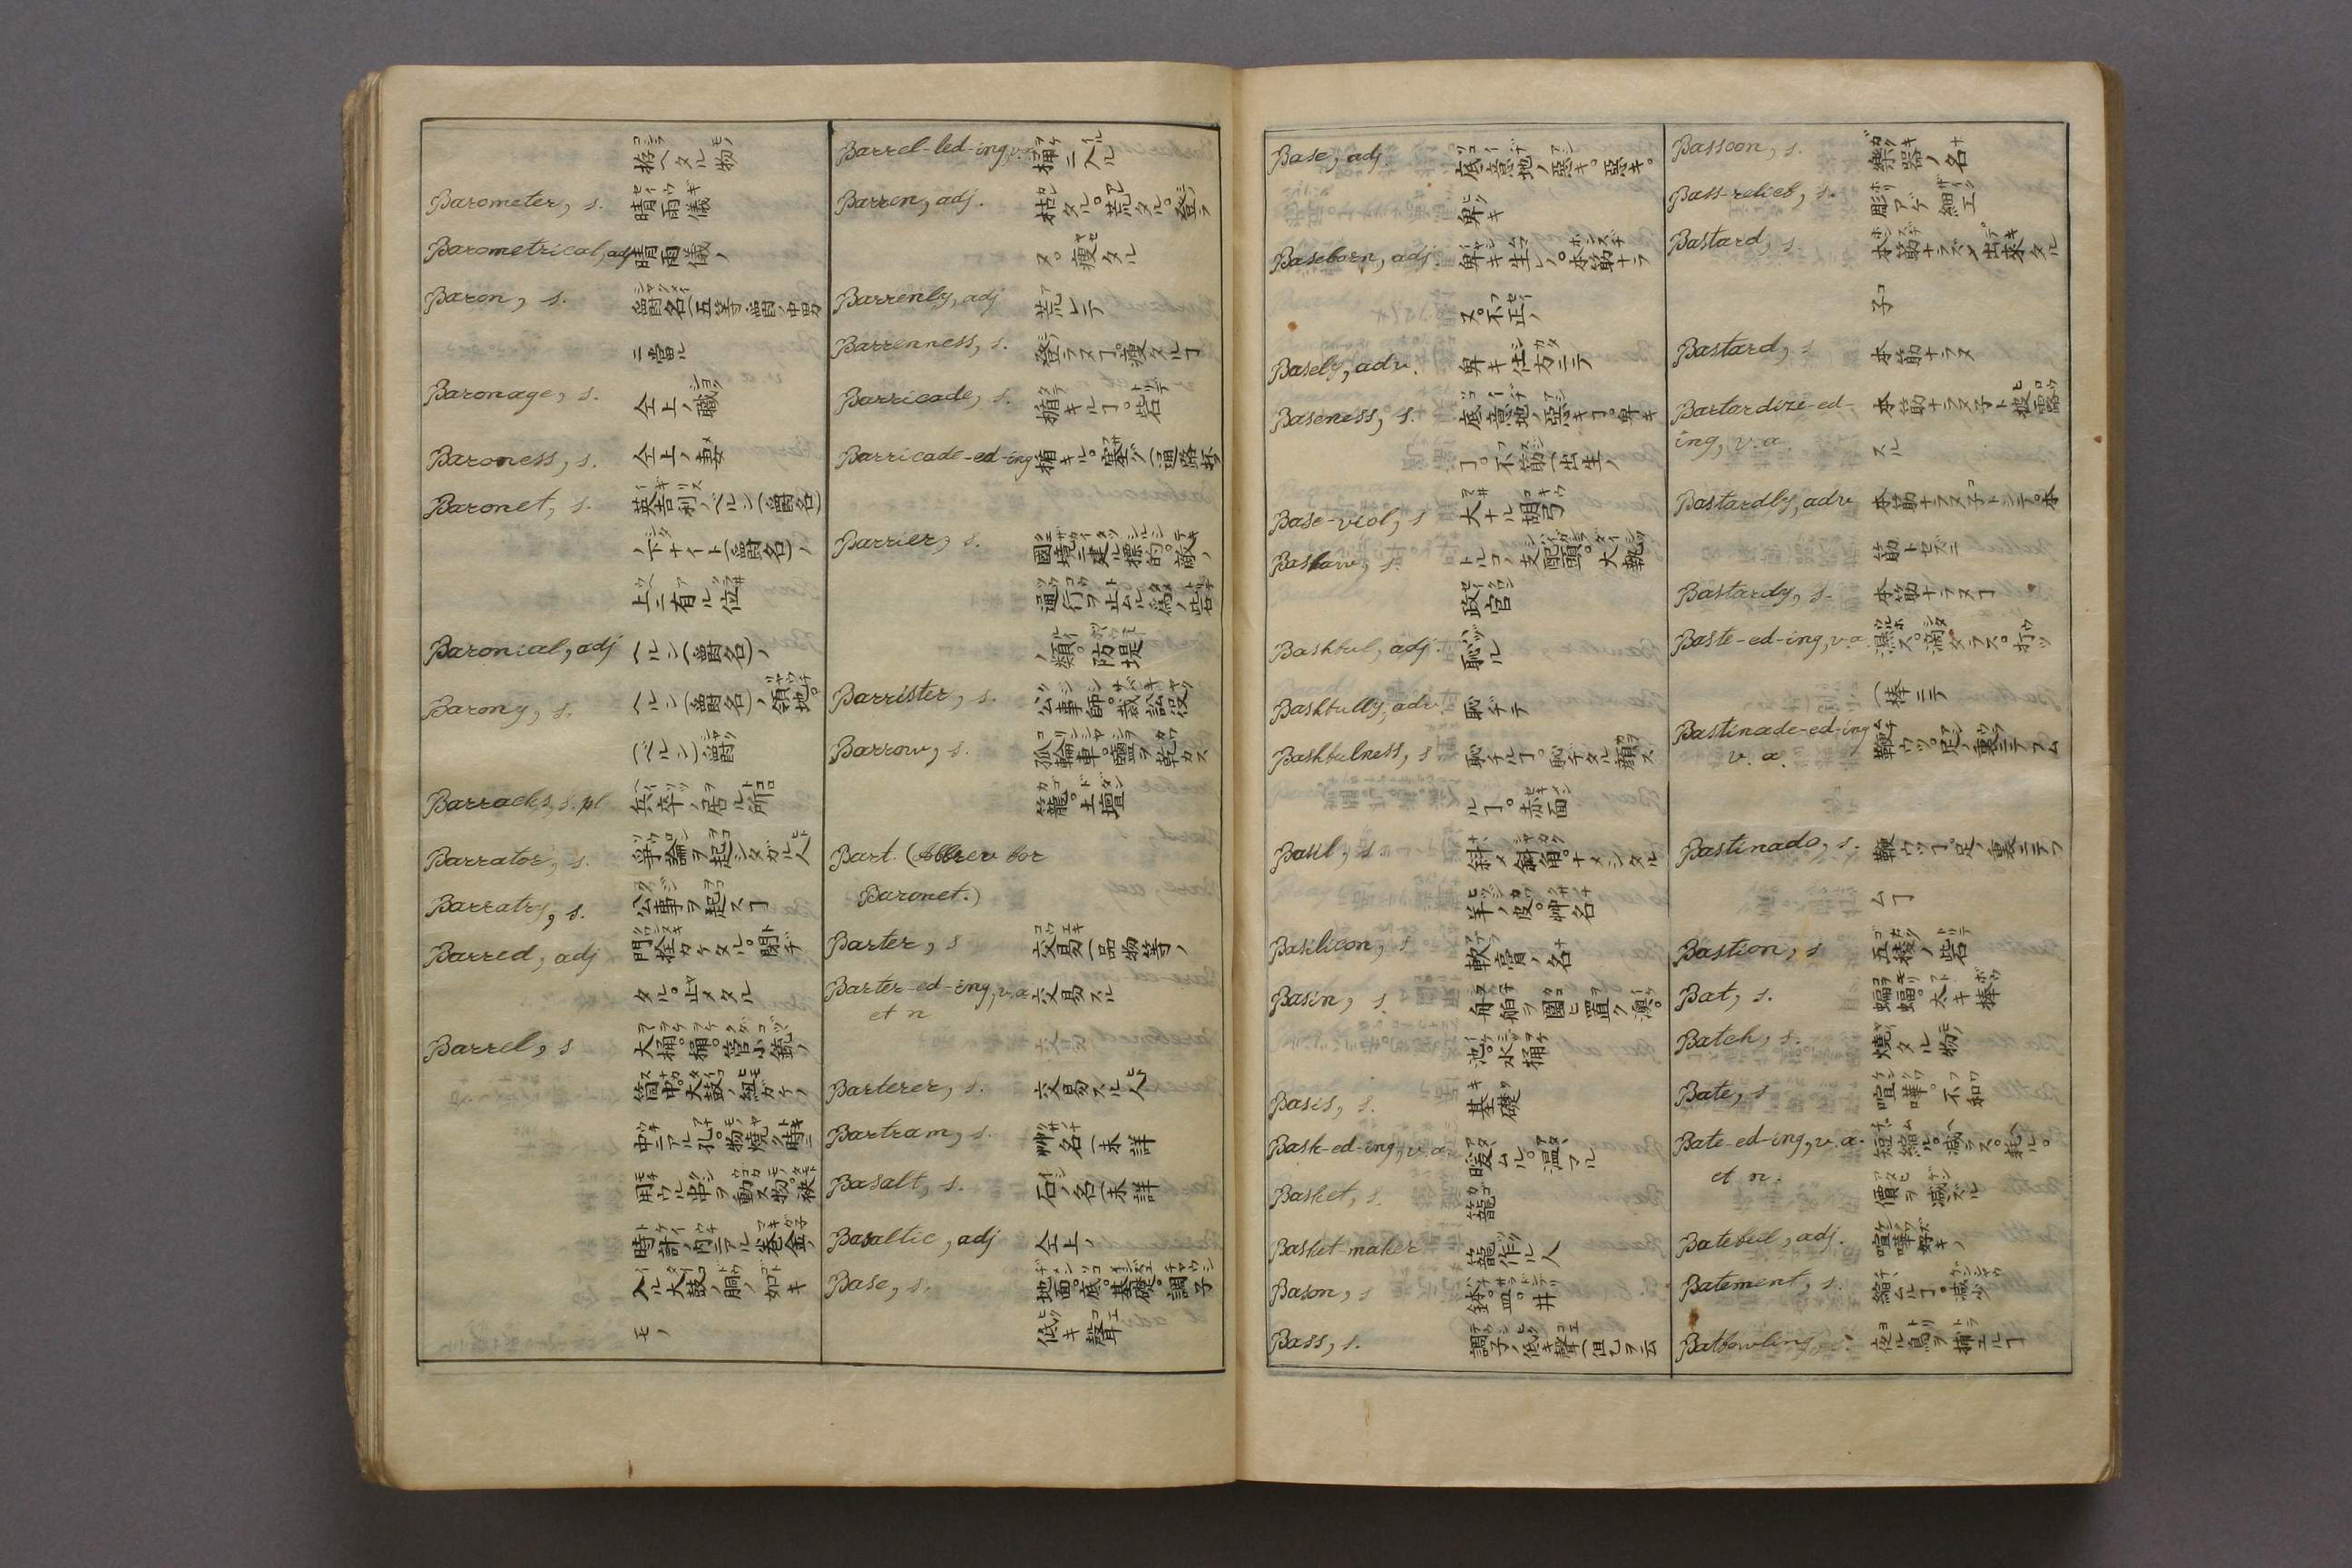 拵ヘタル物
Barometer, s. 晴雨儀
Barometrical, adj 晴雨儀ノ
Baron, s. 爵名(五等ノ爵ノ中男
ニ當ル
Baronage, s. 仝上ノ職
Baroness, s. 仝上ノ妻
Baronet, s. 英吉利ノベルン(爵名)
ノ下ナイト(爵名)ノ
上ニ有ル位
Baronial, adj ベルン(爵名)ノ
Barony, s. ベルン(爵名)ノ領地。
(ベルン)爵
Barracks, s. pl 兵卒ノ居ル所
Barrator, s. 爭論ヲ起シタガル人
Barratry, s. 公事ヲ起スヿ
Barred, adj 門栓カケタル。閉ヂ
タル。止メタル
Barrel, s 大桶。桶。管。小銃ノ
筒。中。太鼓ノ紐ガケノ
中ニアル孔。物燒ク時ニ
用ウル串ヲ動ス物。袂
時計ノ内ニアル卷金ノ
入ル大鼓ノ胴ノ如キ
モノ
Barrel-led-ing, v.a 桶ニ入ル
Barren, adj. 枯タル。荒タル。登ラ
ヌ。瘦タル
Barrenly, adj 荒レテ
Barrenness, s. 登ラヌヿ。瘦タルヿ
Barricade, s. 楯キルヿ。砦
Barricade-ed-ing 楯キル。塞グ(通路抔
Barrier, s. 國境ニ建ル標的。敵ノ
通行ヲ止ムル爲ノ砦
ノ類。防堤
Barrister, s. 公事師。裁訟役
Barrow, s. 孤輪車。鹽ヲ乾カス
籠。土壇
Bart. (Abbrev for
Baronet.)
Barter, s 交易(品物等ノ
Barter-ed-ing, v.a 交易スル
et n
Barterer, s. 交易スル人
Bartram, s. 艸名(未詳
Basalt, s. 石ノ名(未詳
Basaltic, adj 仝上ノ
Base, s. 地面。底。基礎。調子
低キ聲
Base, adj. 底意地ノ惡キ。惡キ。
卑キ
Baseborn, adj. 卑キ生レノ。本筋ナラ
ヌ。不正ノ
Basely, adv. 卑キ仕方ニテ
Baseness, s. 底意地ノ惡キヿ。卑キ
ヿ。不筋(出生ノ
Base-viol, s 大ナル胡弓
Bashaw, s. トルコノ支配頭。大執
政官
Bashful, adj. 恥ル
Bashfully, adv 恥ヂテ
Bashfulness, s 恥ヂルヿ。恥ヂタル顏ス
ルヿ。赤面
Basil, s. 斜メ。斜角。ナメシタル
羊ノ皮。艸名
Basilicon, s 軟膏ノ名
Basin, s. 舟舶ヲ圍ヒ置ク澳。
池。水桶
Basis, s. 基礎
Bask-ed-ing, v.a. 暖ムル。溫マル
Basket, s. 籠
Basket-maker 籠作ル人
Bason, s 鉢。皿。丼
Bass, s. 調子ノ低キ聲(但シヲ云
Bassoon, s. 樂器ノ名
Bass-relief, s. 彫アゲ細工
Bastard, s. 本筋ナラズノ出來タル
子
Bastard, s 本筋ナラヌ
Bastardize-ed- 本筋ナラヌ子ト披露
ing, v.a スル
Bastardly, adv 本筋ナラヌ子トシテ。本
筋トセズニ
Bastardy, s. 本筋ナラヌヿ
Baste-ed-ing, v.a 濕ス。滴タラス。打ツ
(棒ニテ
Bastinade-ed-ing 鞭ウツ。足ノ裏ニテフム
v. a.
Bastinado, s. 鞭ウツヿ。足ノ裏ニテフ
ムヿ
Bastion, s 五稜ノ砦
Bat, s. 蝙蝠。太キ棒
Batch, s. 燒タル物
Bate, s 喧嘩。不和
Bate-ed-ing, v.a. 短縮ル。減ラス。耗ル。
et n. 價ヲ減ズル
Bateful, adj. 喧嘩好キノ
Batement, s. 縮ムルヿ。減少
Batfowling, s. 夜ル鳥ヲ捕エルヿ